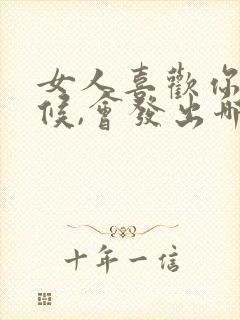 女人喜歡你
候,會發出哪
十年一信